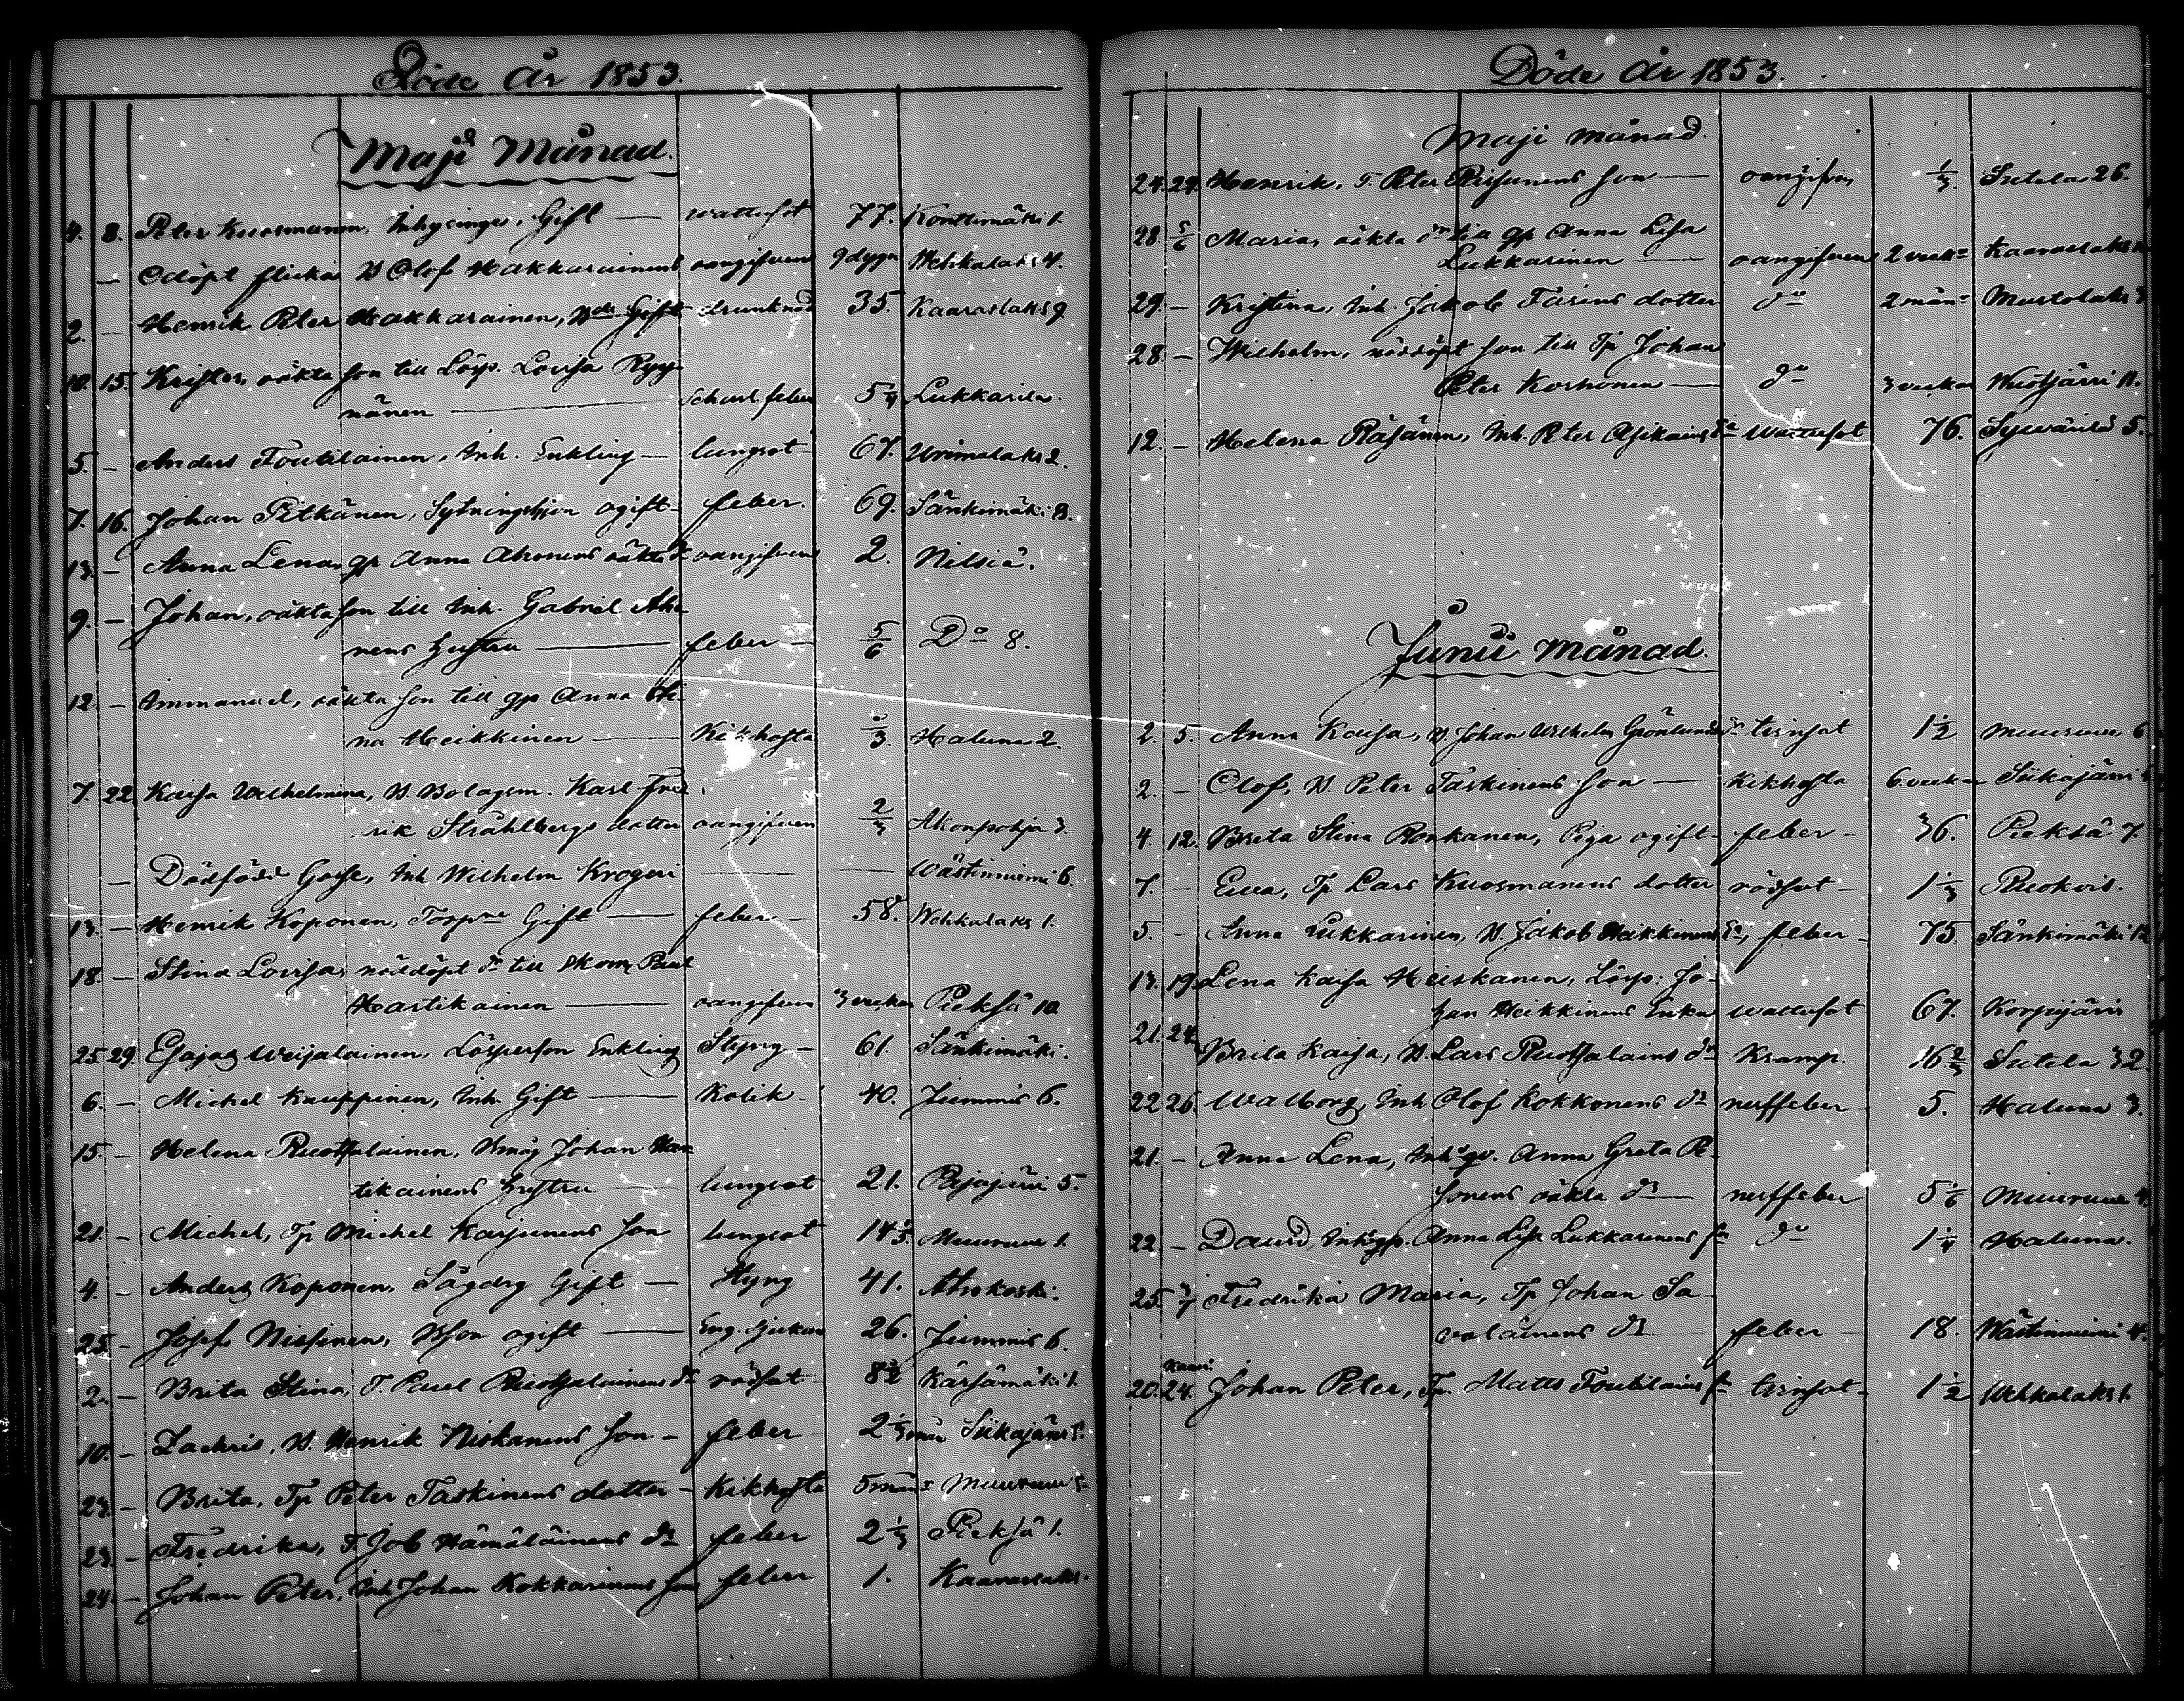 Döde år 1853.
Maji Månad.
4. 8. Peter Kuosmanen, Inhysinge, Gift — wattusot 77. Konttimäki 1.
— Odöpt flicka B Olof Hakkarainens oangifven 9 dygn Wehkalaks 4.
2. — Henrik Peter Hakkarainen, Gift drunknad 35. Kaaraslaks 9
10. 15. Krister, oäkta son till Lösp. Lovisa Ryy-
nänen — feber 5 1/4 Lukkarila.
5. — Anders Toutilainen, Inh. Enkling — lungsot 67. Wrimalaks 2.
7. 16. Johan Pitkänen, Sytningshjon ogift — feber. 69. Sänkimäki 8.
13. — Anna Lena, gp Anna Ahonens oäkta dr oangifven 2. Nilsiä.
9. — Johan, oäkta son till Inh. Gabriel Aho-
nens hustru — feber — 5/6 Do 8.
12. — Immanuel, oäkta son till gp Anna Sti-
na Heikkinen — Kikhosta Haluna 2.
7. 22 Kaisa Wilhelmina, B Bolagsm. Karl Fred-
rik Stråhlbergs dotter oangifven 2/3 Akonpohja 3.
— Dödfödd Gosse, Inh Wilhelm Krogeri — — Wästinniemi 6.
13. — Henrik Koponen, Torpre Gift — feber — 58. Wehkalaks 1.
18. — Stina Lovisa, nöddöpt dr till Skom. Paul
Hartikainen — oangifven 3 veckor Pieksä 10
25. 29. Esajas Weijalainen, Lösperson Enkling Styng — 61. Sänkimäki.
6. — Michel Kauppinen, Inh. Gift — Kolik 40. Jummis 6.
15. — Helena Ruotsalainen, Bmåg Johan Har-
tikainens hustru — lungsot 21. Pajujärvi 5.
21. — Michel, Tp Michel Karjunens son lungsot 14 1/3 Muuruue 1.
4. — Anders Koponen, Sågdrg Gift — Styng 41. Atrokoski.
25. — Josef Nissinen, Bson ogift — Eng. sjukan 26. Jummis 6.
2. — Brita Stina, T. Paul Ruotsalainens dr rödsot 8 1/2 Kärsämäki 1.
10. — Zachris, B. Henrik Niskanens son — feber 2 Siikajärvi
23. — Brita, Tp Peter Taskinens dotter — Kikhosta 5 mån. Muuruue
23. — Fredrika, T. Job Hämäläinens dr feber 2 1/3 Pieksä 1.
24. — Johan Peter, Inh Johan Kokkarinens son feber 1. Kaaraslaks.
Döde år 1853.
Maji månad.
24. 29. Henrik, T. Peter Pirhonens son — oangifven 1/3. Sutela 26.
28. 5/6 Maria, oäkta dr till gp Anna Lisa
Lukkarinen — oangifven 2 veckr Kaaraslaks
29. — Kristina, Inh. Jakob Tarins dotter do 2 månr Mustolaks
28. — Wilhelm, nöddöpt son till Tp Johan
Peter Korhonen — do 3 veckor Wuotjärvi 11.
12. — Helena Räsänen, Inh. Peter Asikains Wattusot 76. Sywäniemi 5.
Junii Månad.
2. 5. Anna Kaisa, B Johan Wilhelm Grönlunds dr trinsot 1 1/2 Muuruue 6
2. — Olof, B. Peter Taskinens son — Kikhosta 6 veckor Siikajärvi
4. 12. Brita Stina Ronkanen, Piga ogift — feber — 36. Pieksä 7.
7. — Eva, Tp Lars Kuosmanens dotter rödsot — 1 1/3 Ruokois.
5. — Anna Lukkarinen, B. Jakob Hakkinens Ea, feber — 75. Sänkimäki 12
13. 19. Lena Kaisa Heiskanen, Lösp: Jo-
han Heikkinens Enka Wattusot 67. Korpijärvi
21. 24 Brita Kaisa, B. Lars Ruotsalains dr Kramp. 16 2/3 Sutela 32.
22 26. Walborg, Inh Olof Kokkonens dr nerffeber 5. Haluna 3.
21. — Anna Lena, Inh. gv. Anna Greta
sonens oäkta dr — nerffeber 5 1/6 Muuruue 4.
22. — David, Inh. gp. Anna Lisa Lukkarinens sn do 1 1/4 Haluna.
25. Fredrika Maria, Tp Johan Sa-
volainens dr feber — 18. Wästinniemi 4.
20. 24. Johan Peter, Tp. Matts Toutilains sn trinsot — 1 1/2 Wehkalaks 1.